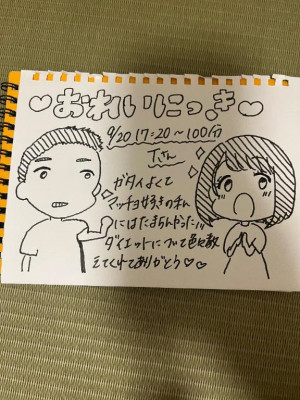 ♡おれいにっき♡
9/20 17:20〜100分
Tさん
ガタイよくて
マッチョ好きの私
にはたまらんかった!!
ダイエットについて色々教
えてくれてありがとう♡♡